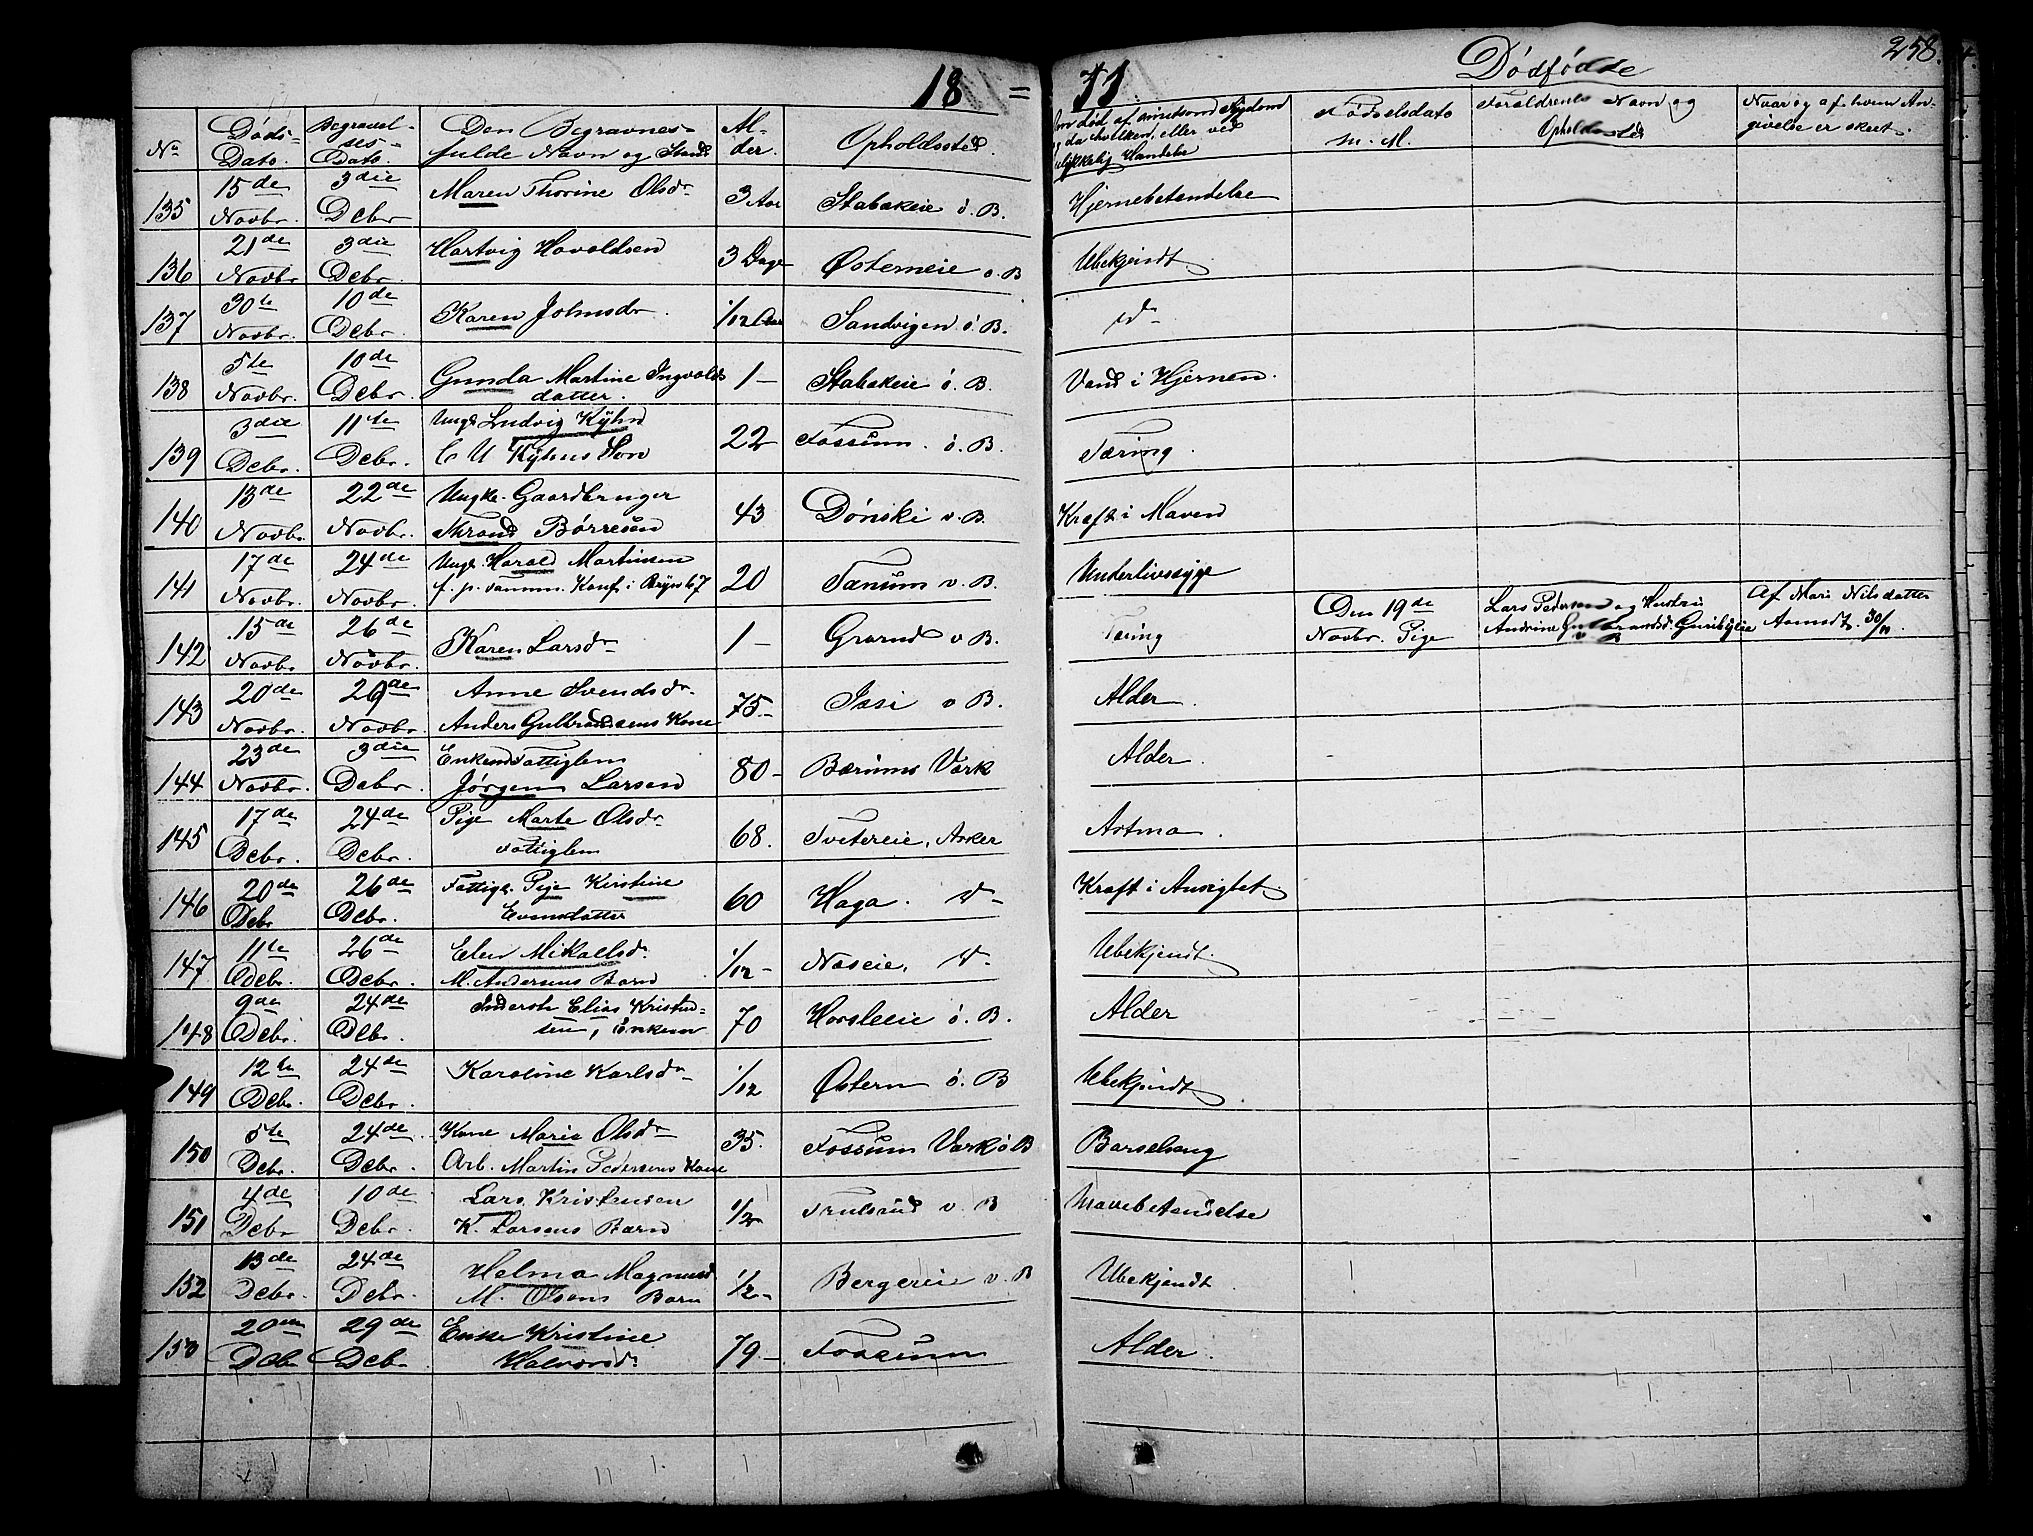 18 = 51
Dödfødte
258.
No
Døds-
Dato.
Begravel-
ses-
Dato.
Den Begravnes
fulde Navn og Stand
Al-
der.
Opholdssted.
Om død af smitsom Sygdom
og da hvilken, eller ved
ulykkelig Hændelse
Fødselsdato
m. M.
Forældrenes Navn og
Opholdssted
Naar og af hvem An-
givelse er skeet.
135 15de Novbr. 3die Debr Maren Thorine Olsdr 3 Aar Stabækeie ö. B. Hjernebetændelse
136 21de Novbr. 3die Debr. Hartvig Havoldsen 3 Dage Østerneie ö. B Ubekjendt
137 30te Novbr. 10de Debr. Karen Johnsdr. 1/12 Aar Sandvigen ö. B. do
138 5te Novbr. 10de Debr. Gunda Martine Ingvolds
datter. 1 - Stabækeie ö. B. Vand i Hjernen.
139 3die Debr. 11te Debr. Ungk. Ludvig Kÿhn
C U Kÿhns Søn 22 Fossum. ö. B. Tæring.
140 13de Novbr. 22de Novbr. Ungk. Gaardbruger
Thrond Börresen 43 Dönski v. B. Kræft i Maven
141 17de Novbr. 24de Novbr. Ungk. Harald Martinsen
20 Tanum v. B. Underlivssyge
142 15de Novbr. 26de Novbr. Karen Larsdr 1 - Grorud v B. Tæring
Den 19de
Novbr. Pige
Lars Pedersen og Hustru
Andrine
v B
Af Mari Nilsdatter
30/11.
143 20de Novbr. 29de Novbr. Anne Svendsdr.
Anders Gulbrandsens Kone 75 - v B. Alder.
144 23de Novbr. 3die Debr. Enkemd Fattiglem
Jörgen Larsen 80 - Bærums Værk Alder.
145 17de Debr. 24de Debr. Pige Marte Olsdr
Fattiglem 68. Tvetereie, Asker Astma.
146 20de Debr 26de Debr. Fattigk. Pige Kirstine
Evensdatter 60 Haga. do Kræft i Ansigtet
147 11te Debr. 26de Debr. Elen Mikaelsd.
M. Andersens Barn 1/12 - Næseie, do Ubekjendt.
148 9de Debr. 24de Debr. Inderst Elias Kristen-
sen, Enkem. 70 Horsleeie ö. B. Alder
149 12te Debr. 24de Debr. Karoline Karlsdr 1/12 Østern ö. B Ubekjendt.
150 5te Debr. 24de Debr. Kone Marie Olsdr
Arb. Martin Pedersens Kone 35. Fossum Værk ö B Barselseng
151 4de Debr 10de Debr. Lars Kristensen
K. Larsens Barn 1/2 Trulsrud v. B Mavebetændelse
152 13de Debr. 24de Debr. Helma Magnusd.
M. Olsens Barn 1/2 - Bergereie v. B Ubekjendt
153 20de Debr 29de Debr Enke Kristine
Halvorsd. 79. - Fossum Alder.